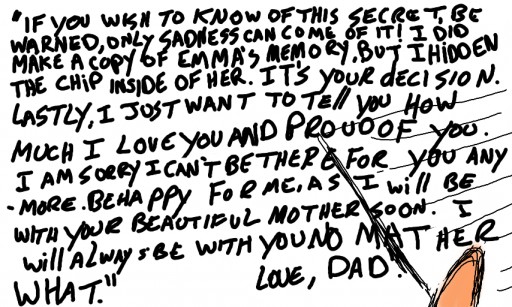 "IF YOU WISH TO KNOW OF THIS SECRET, BE
WARNED, ONLY SADNESS CAN COME OF IT! I DID
MAKE A COPY OF EMMA'S MEMORY, BUT I HIDDEN
THE CHIP INSIDE OF HER. IT'S YOUR DECISION.
LASTLY, I JUST WANT TO TEll YOU HOW
MUCH I LOVE YOU AND PROUD OF YOU.
I AM SORRY I CAN'T BE THERE FOR YOU ANY
-MORE. BE HAPPY FOR ME, AS I will BE
WITH YOUR BEAUTIFUL MOTHER SOON. I
will ALWAYS BE WITH YOU NO MATHER
WHAT." LOVE, DAD".